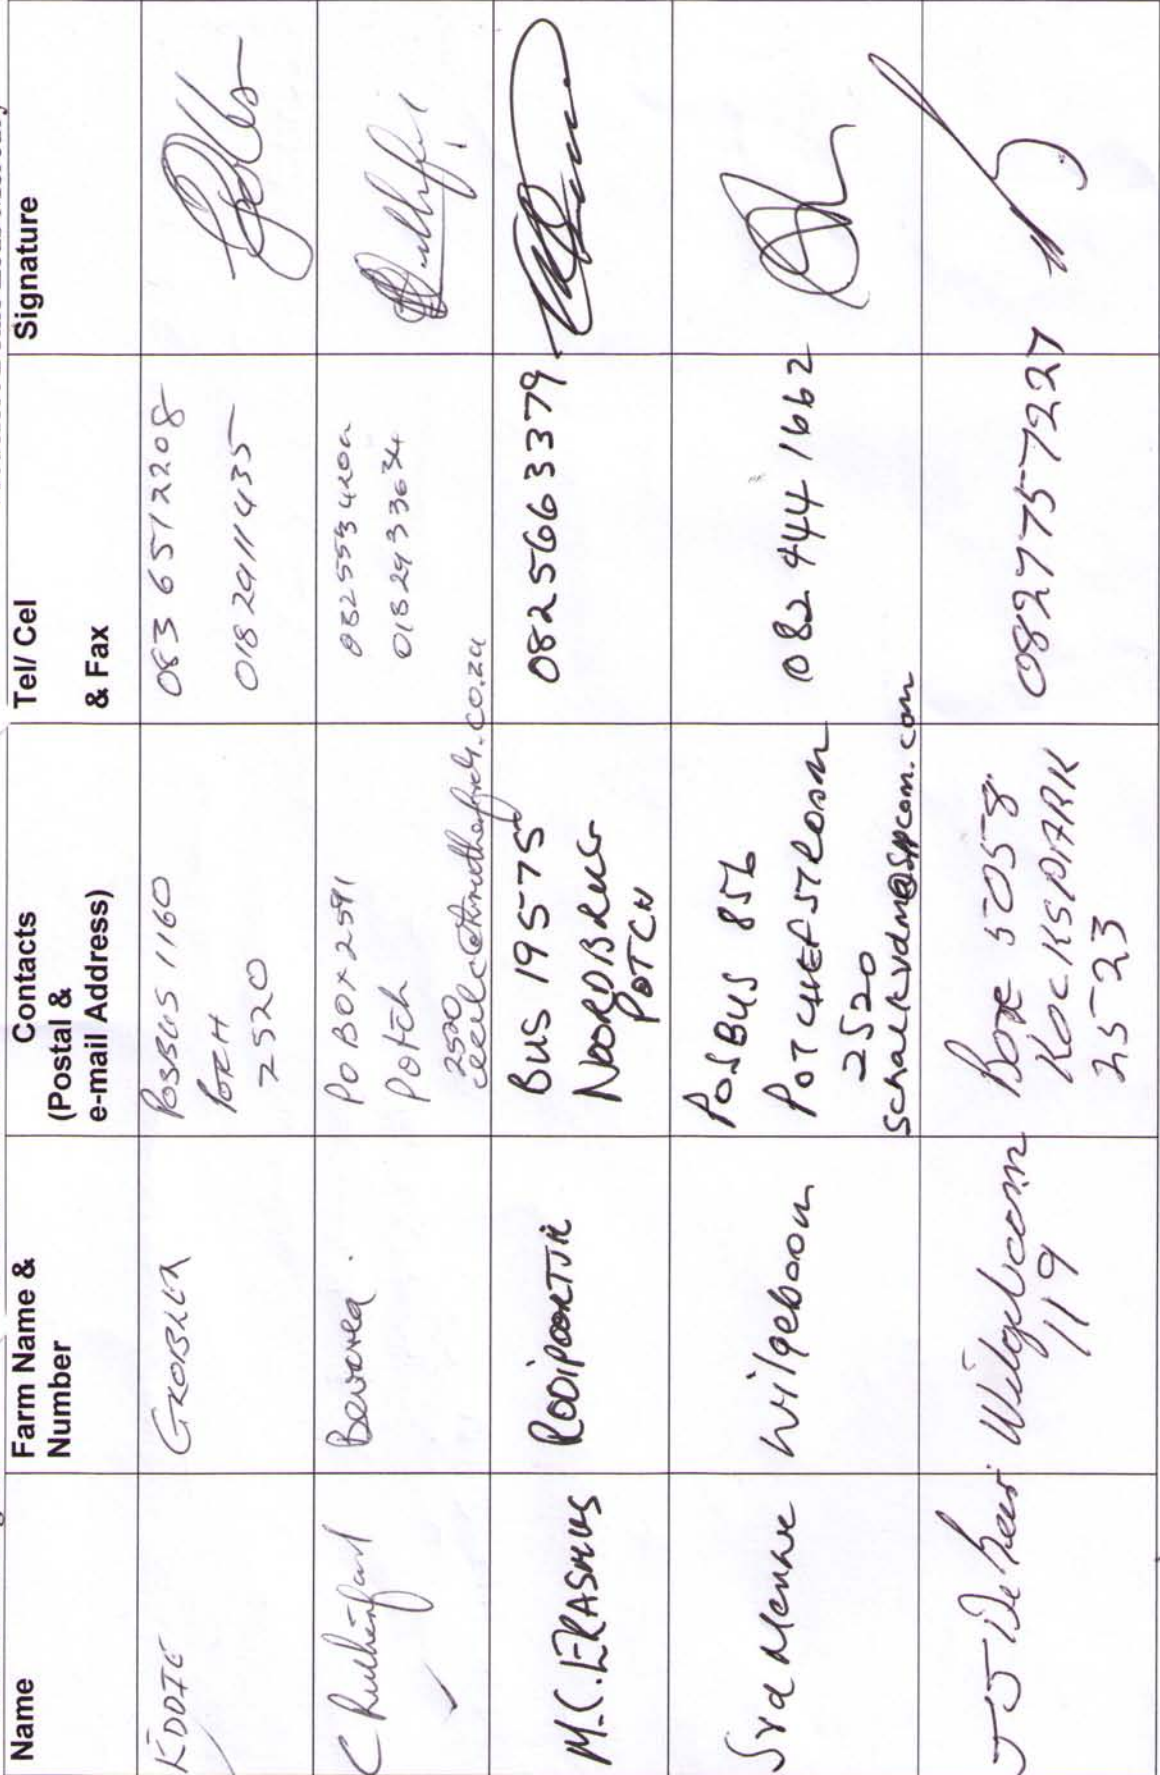 Name
Farm Name &
Number
Contacts
(Postal &
e-mail Address)
Tel/ Cel
& Fax
Signature
EDDIE
GROBLER
POSBUS 1160
POTCH
2520
083 6512208
018 2911435
C Rutherford
PO BOX 2591
Potch
2520
018 293 3634
M.C. ERASMUS
ROOIPOORTJIE
BUS 19575
NOORDBRUG
POTCH
0825663379
S vd Merwe
Wilgeboom
POSBUS 856
POTCHEFSTROOM
2520
schalkvdm@
082 444 1662
JJ De Beer
Wilgeboom
119
Box 5058
KOCKSPARK
2523
0827757227